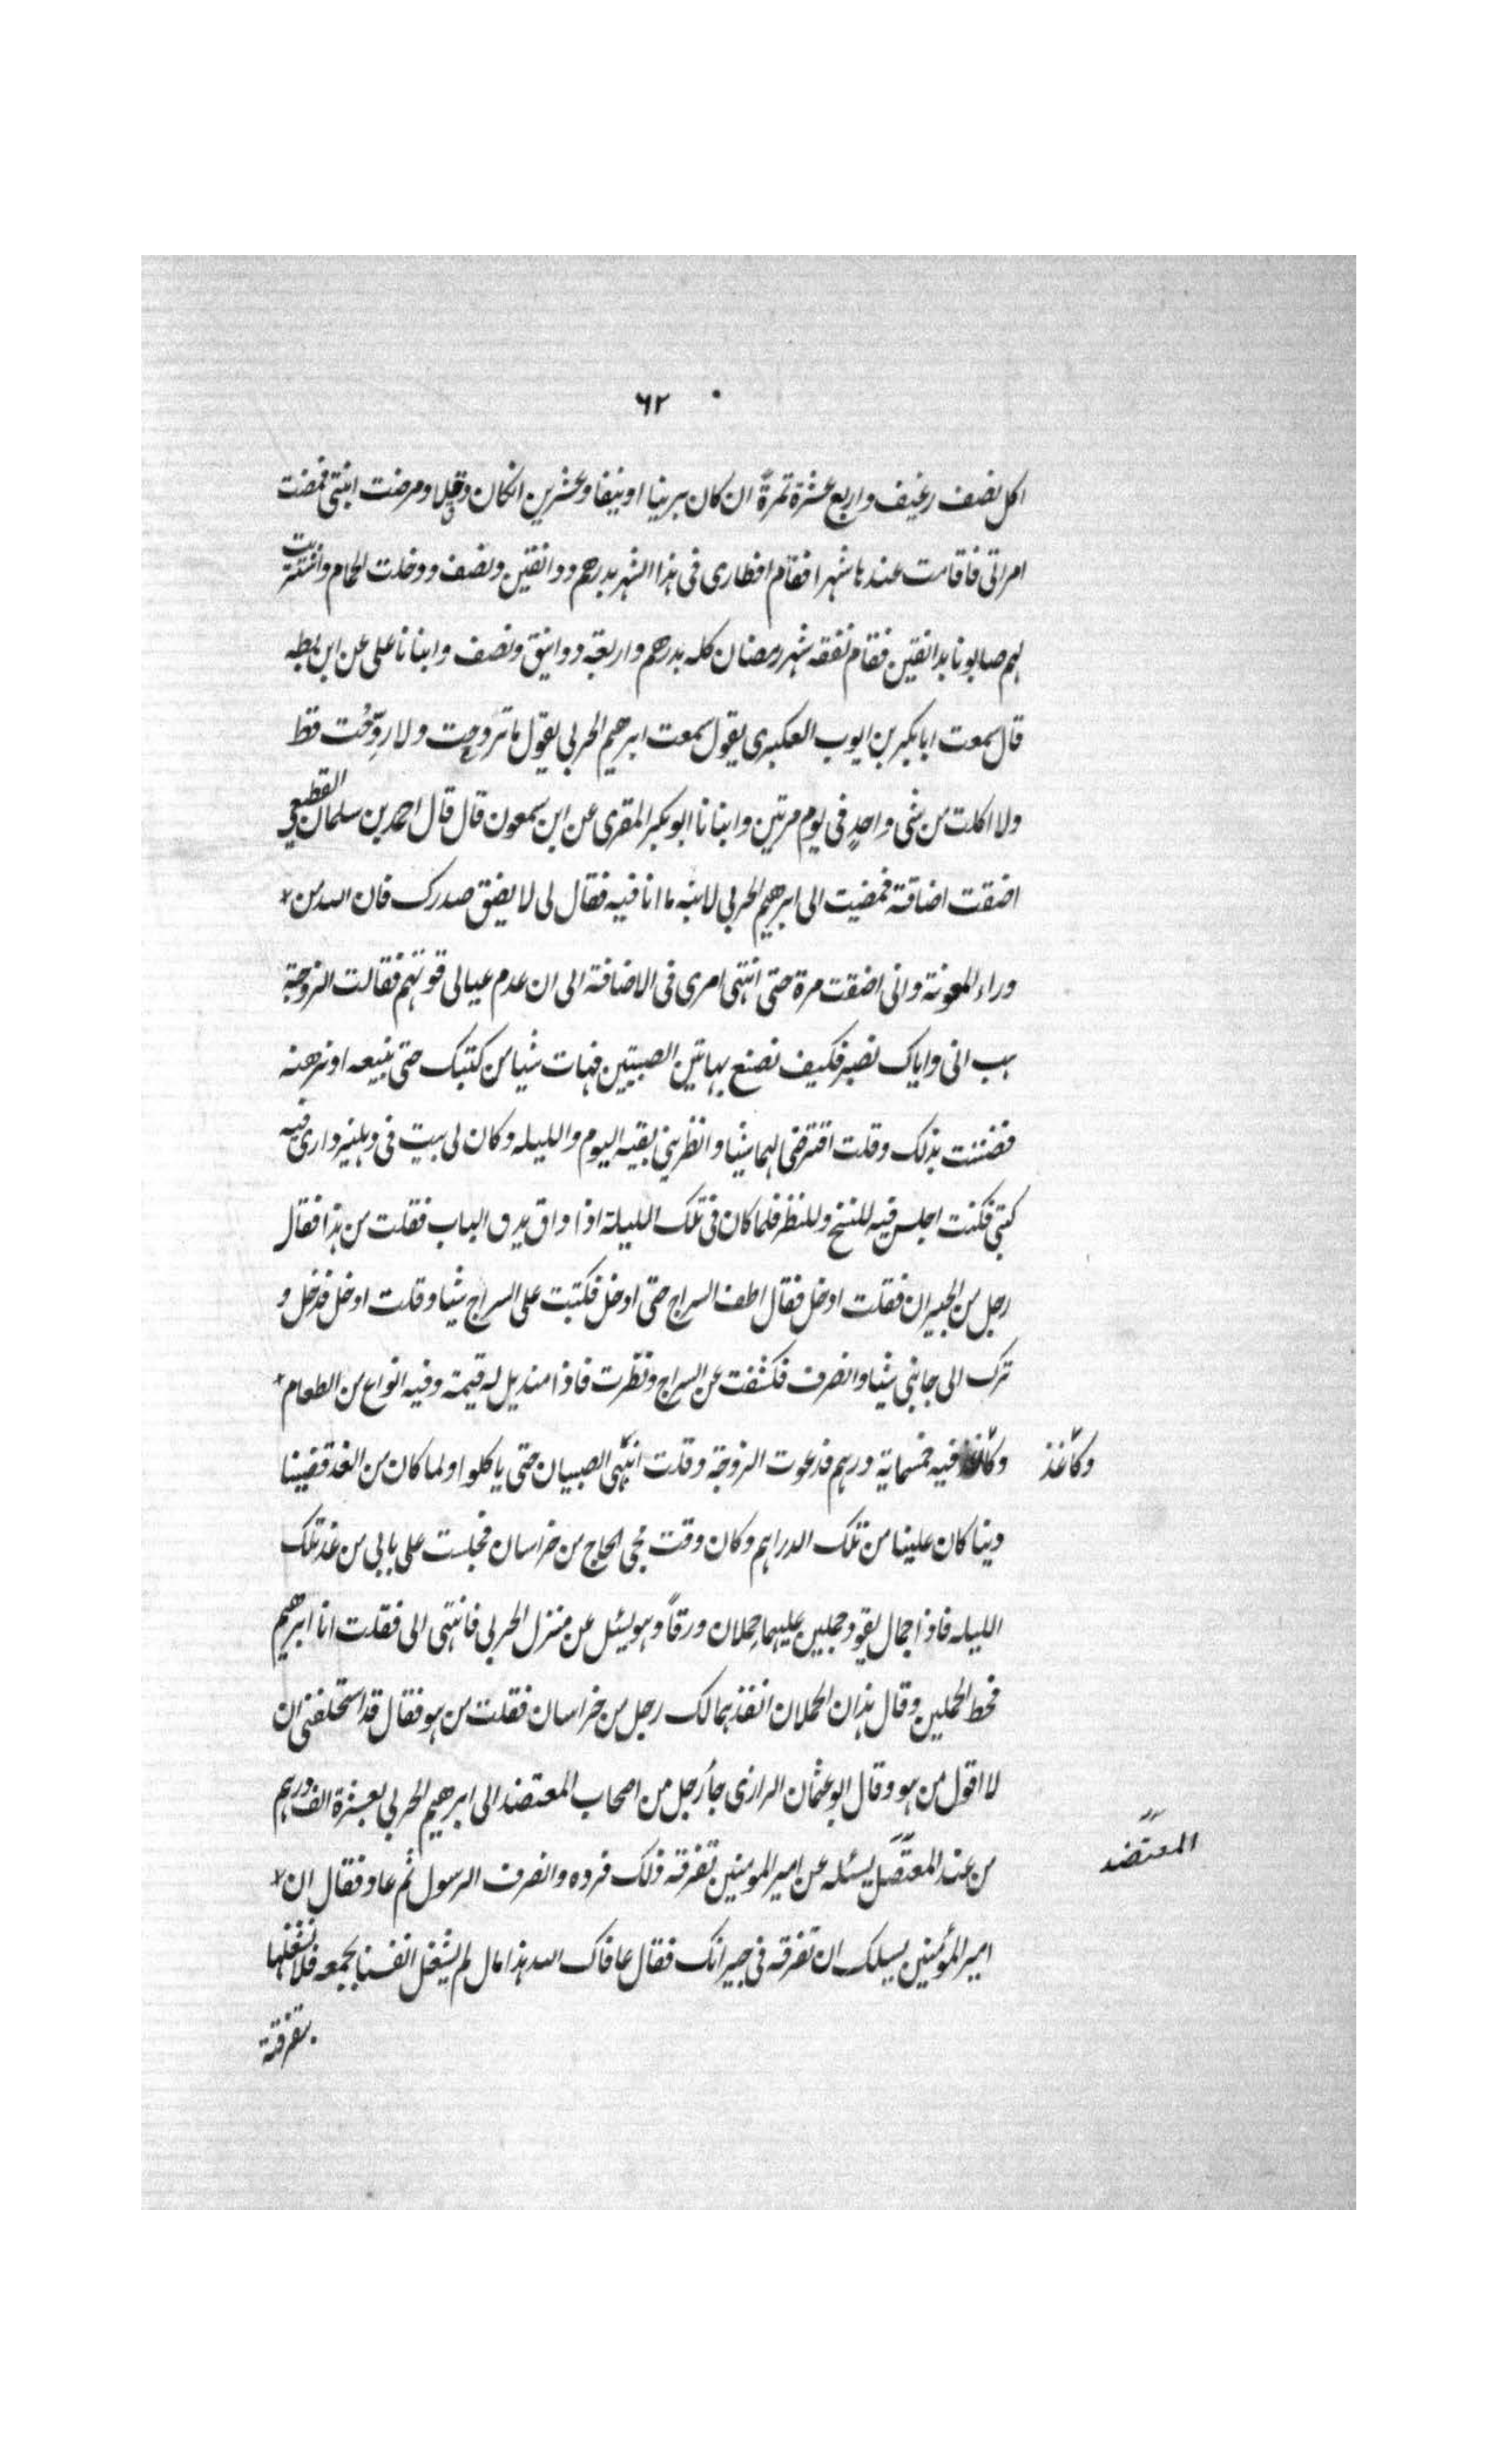 ٦٢
اكل نصف رغيف واربع عشرة تمرة ان كان برنيا او نيفا وعشرين ان كان دقلا ومرضت ابنتى فمضت
امراتى فاقامت عندها شهرا فقام افطارى فى هذا الشهر بدرهم ودانقين ونصف ودخلت الحمام واشتريت
لهم صابونا بدانقين فقام نفقه شهر رمضان كله بدرهم واربعة دوانيق ونصف وابنانا على عن ابن بطه
قال سمعت ابا بكر بن ايوب العكبرى يقول سمعت ابرهيم الحربى يقول ما تروحت ولا روّحت قط
ولا اكلت من شى واحدٍ فى يوم مرتين وابنانا ابو بكر المقرى عن ابن سمعون قال قال احمد بن سلمان القطيعى
اضقت اضاقة فمضيت الى ابرهيم الحربى لابثه ما انا فيه فقال لى لا يضق صدرك فان الله من
وراء المعونة وانى اضقت مرة حتى انتهى امرى فى الاضاقة الى ان عدم عيالى قوتهم فقالت الزوجة
هب انى واياك نصبر فكيف نصنع بهاتين الصبيتين فهات شيا من كتبك حتى نبيعه او نرهنه
فضننت بذلك وقلت اقترضى لهما شيا وانظرينى بقيه اليوم والليله وكان لى بيت فى دهليز دارى فيه
كتبى فكنت اجلس فيه للنسخ وللنظر فلما كان فى تلك الليلة اذا داق يدق الباب فقلت من هذا فقال
رجل من الجيران فقلت ادخل فقال اطف السراج حتى ادخل فكببت على السراج شيا وقلت ادخل فدخل و
ترك الى جانبى شيا وانصرف فكشفت عن السراج ونظرت فاذا منديل له قيمة وفيه انواع من الطعام
وكاغذ فيه خمسماية درهم فدعوت الزوجة وقلت انبهى الصبيان حتى ياكلوا ولما كان من الغد قضينا
وكاغذ
دينا كان علينا من تلك الدراهم وكان وقت مجى الحاج من خراسان فجلست على بابى من غد تلك
الليله فاذا جمال يقود جملين عليهما حملان ورقاً وهو يسئل عن منزل الحربى فانتهى الى فقلت انا ابرهيم
فحط الحملين وقال هذان الحملان انفذهما لك رجل من خراسان فقلت من هو فقال قد استحلفنى ان
لا اقول من هو وقال ابو عثمان الرازى جاء رجل من اصحاب المعتضد الى ابرهيم الحربى بعشرة الف درهم
من عند المعتضد يسئله عن امير المومنين تفرقة ذلك فرده وانصرف الرسول ثم عاد فقال ان
المعتضد
امير المؤمنين يسلك ان تفرقه فى جيرانك فقال عافاك الله هذا مال لم يشغل انفسنا بجمعه فلا نشغلها
بتفرقته